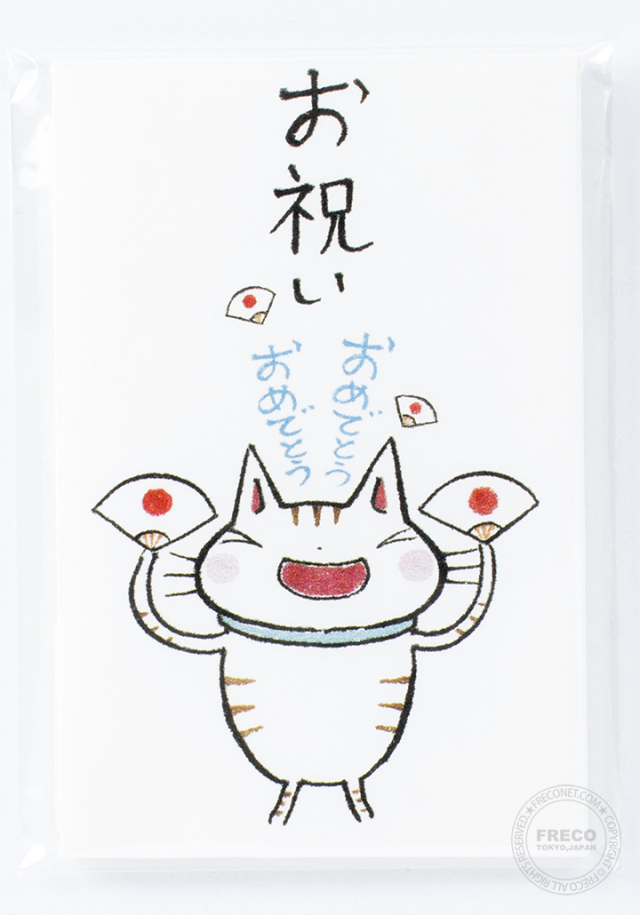 お祝い
おめでとう
おめでとう
FRECONET.COM★COPYRIGHT©FRECO ALL RIGHTS RESERVED.★
FRECO
TOKYO,JAPAN